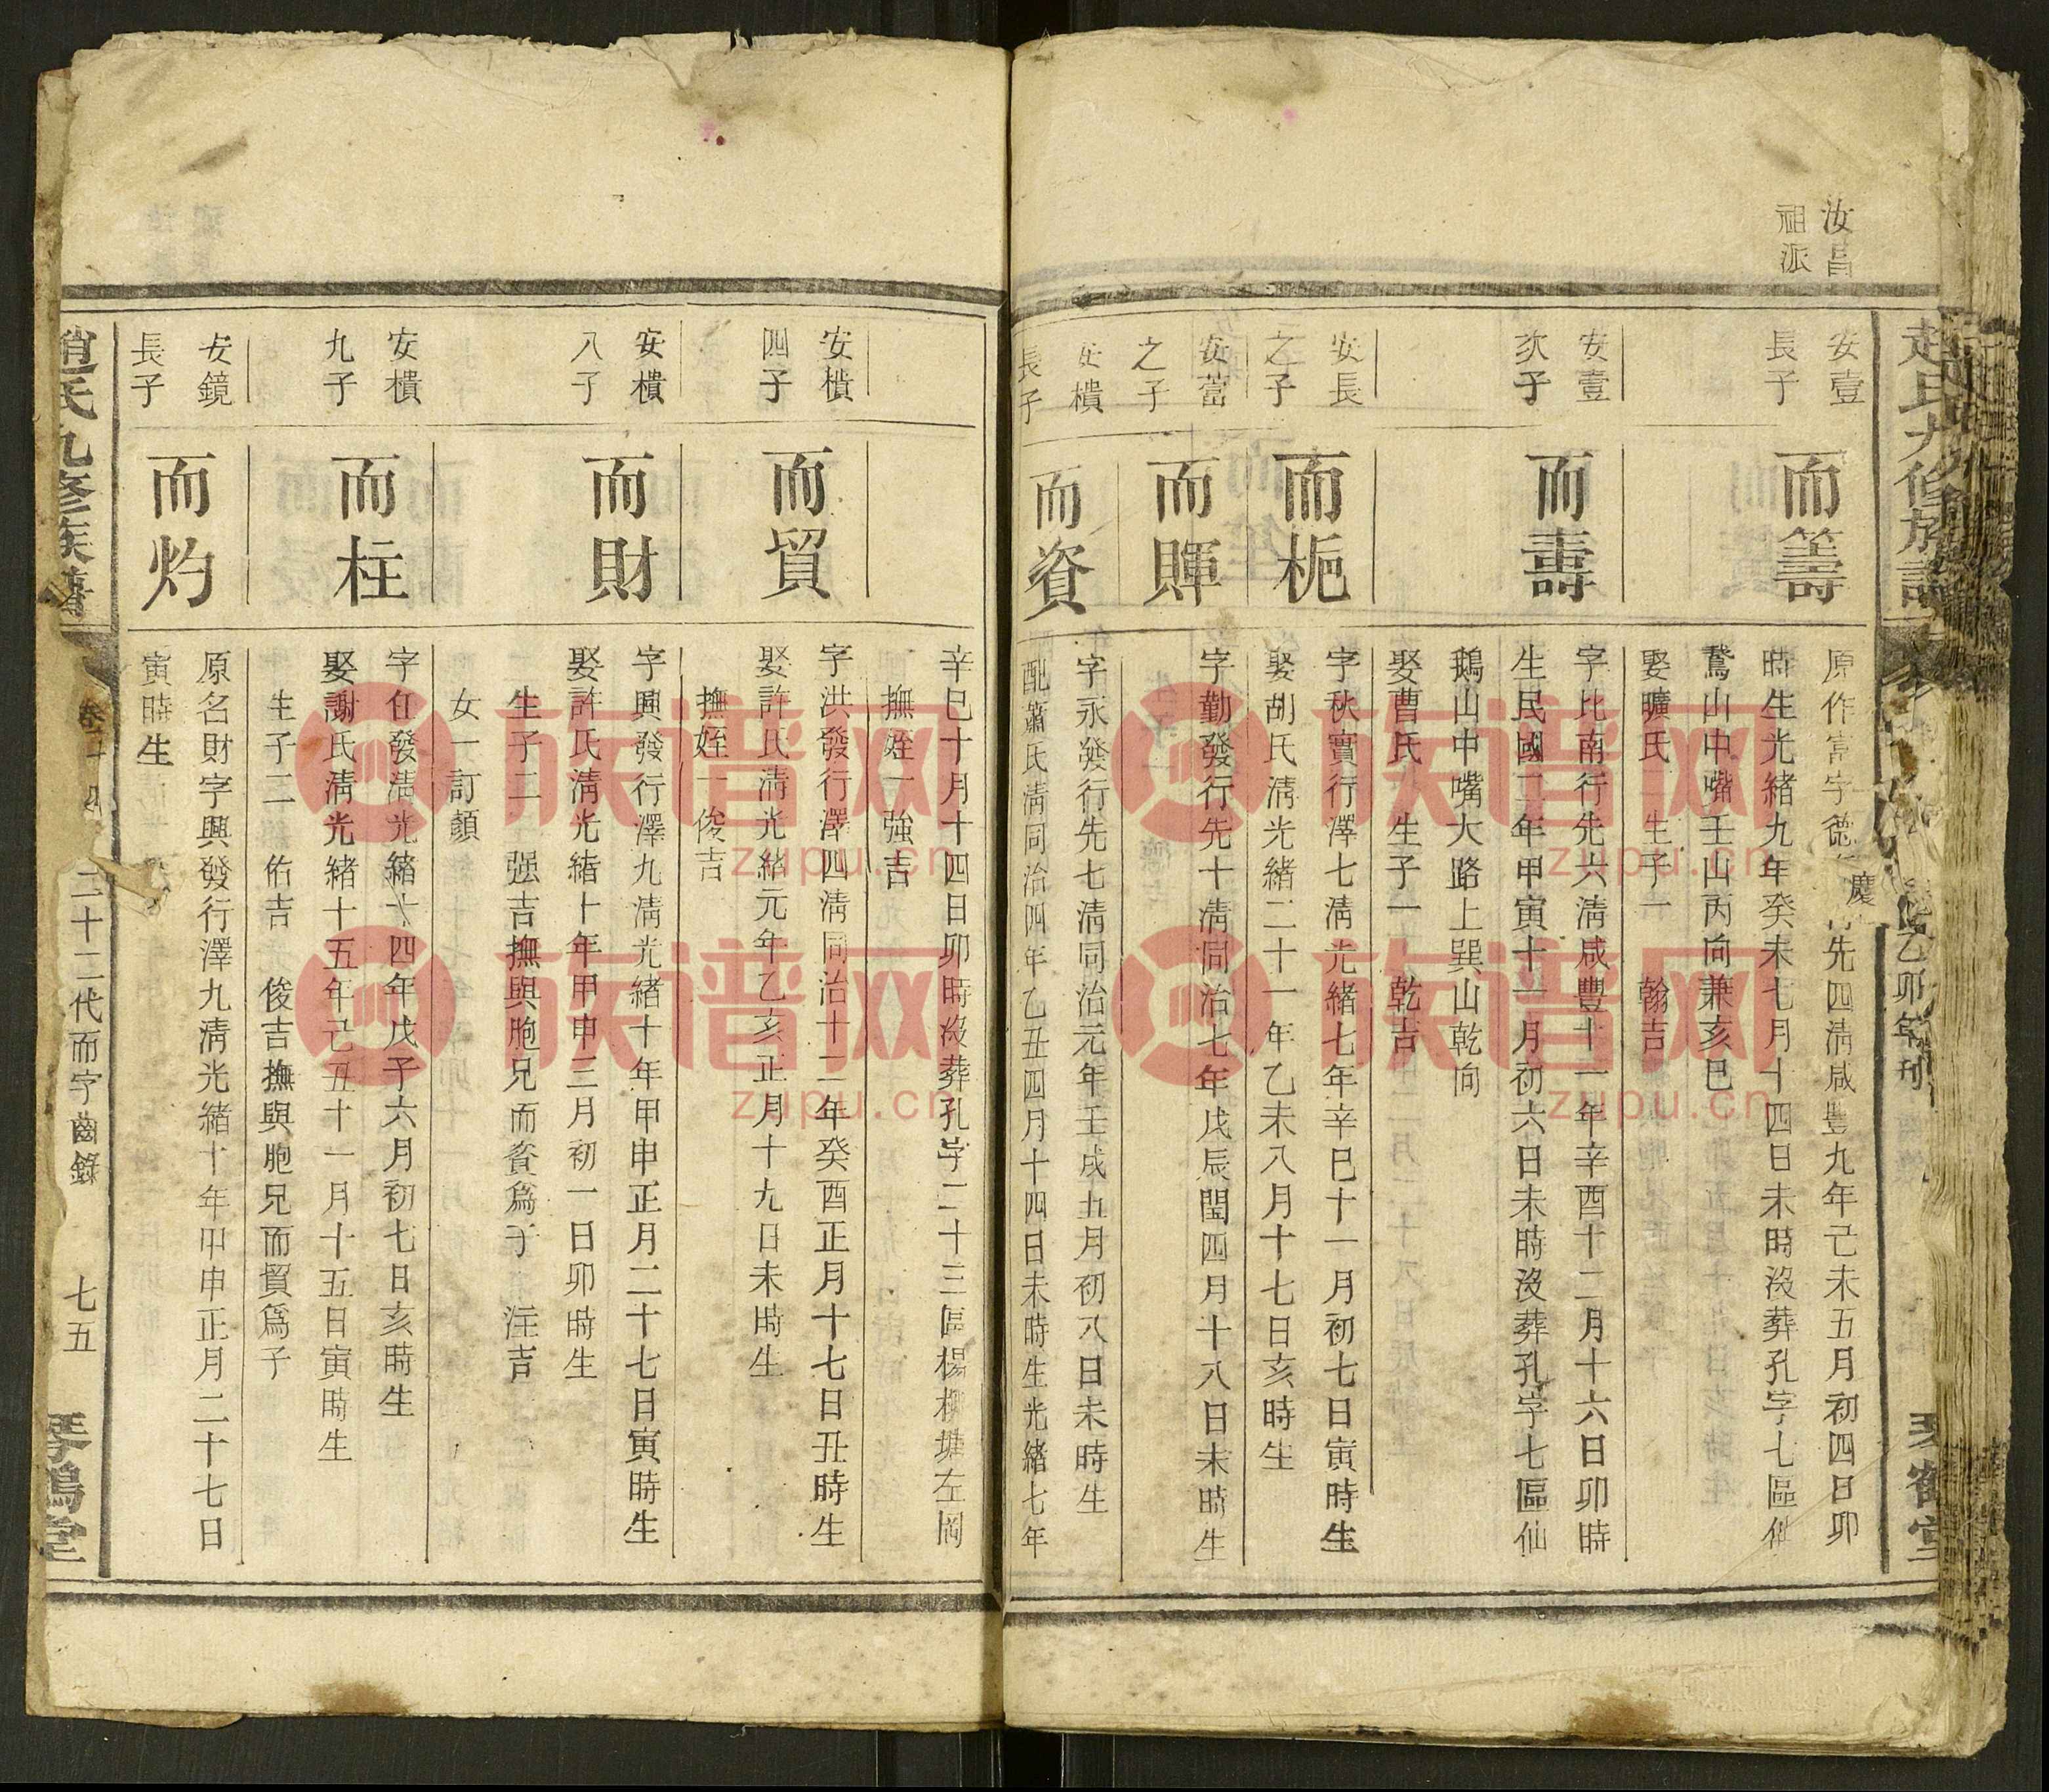 汝昌
祖派
趙氏九修族譜
乙卯年刊
琴鶴堂
安壹
長子
而籌
原作富字德慶 先四淸咸豐九年己未五月初四日卯
時生光緒九年癸未七月十四日未時沒葬孔字七區仙
鵞山中嘴壬山丙向兼亥巳
娶曠氏 生子一 翰吉
安壹
次子
而壽
字比南行先六淸咸豐十一年辛酉十二月十六日卯時
生民國 年甲寅十一月初六日未時沒葬孔字七區仙
鵝山中嘴大路上巽山乾向
娶曹氏 生子一 乾吉
安長
之子
而梔
字秋實行澤七淸光緒七年辛巳十一月初七日寅時生
娶胡氏淸光緒二十一年乙未八月十七日亥時生
安蒥
之子
而賱
字勤發行先十淸同治七年戊辰閏四月十八日未時生
安樻
長子
而資
字永發行先七淸同治元年壬戌五月初八日未時生
配蕭氏淸同治四年乙丑四月十四日未時生光緒七年
辛巳十月十四日卯時沒葬孔字二十三區楊柳塘左岡
撫姪一強吉
安樻
四子
而貿
字洪發行澤四淸同治十二年癸酉正月十七日丑時生
娶許氏淸光緒元年乙亥正月十九日未時生
撫姪一俊吉
安樻
八子
而財
字興發行澤九淸光緒十年甲申正月二十七日寅時生
娶許氏淸光緒十年甲申三月初一日卯時生
生子二 强吉撫與胞兄而資爲子 注吉
女一訂顏
安樻
九子
而柱
字任發淸光緒十四年戊子六月初七日亥時生
娶謝氏淸光緒十五年己丑十一月十五日寅時生
生子二 佑吉 俊吉撫與胞兄而貿爲子
安鏡
長子
而灼
原名財字興發行澤九淸光緒十年甲申正月二十七日
寅時生
趙氏九修族譜
二十二代而字齒錄
七五
琴鶴堂
族谱网
zupu.cn
族谱网
zupu.cn
族谱网
zupu.cn
族谱网
zupu.cn